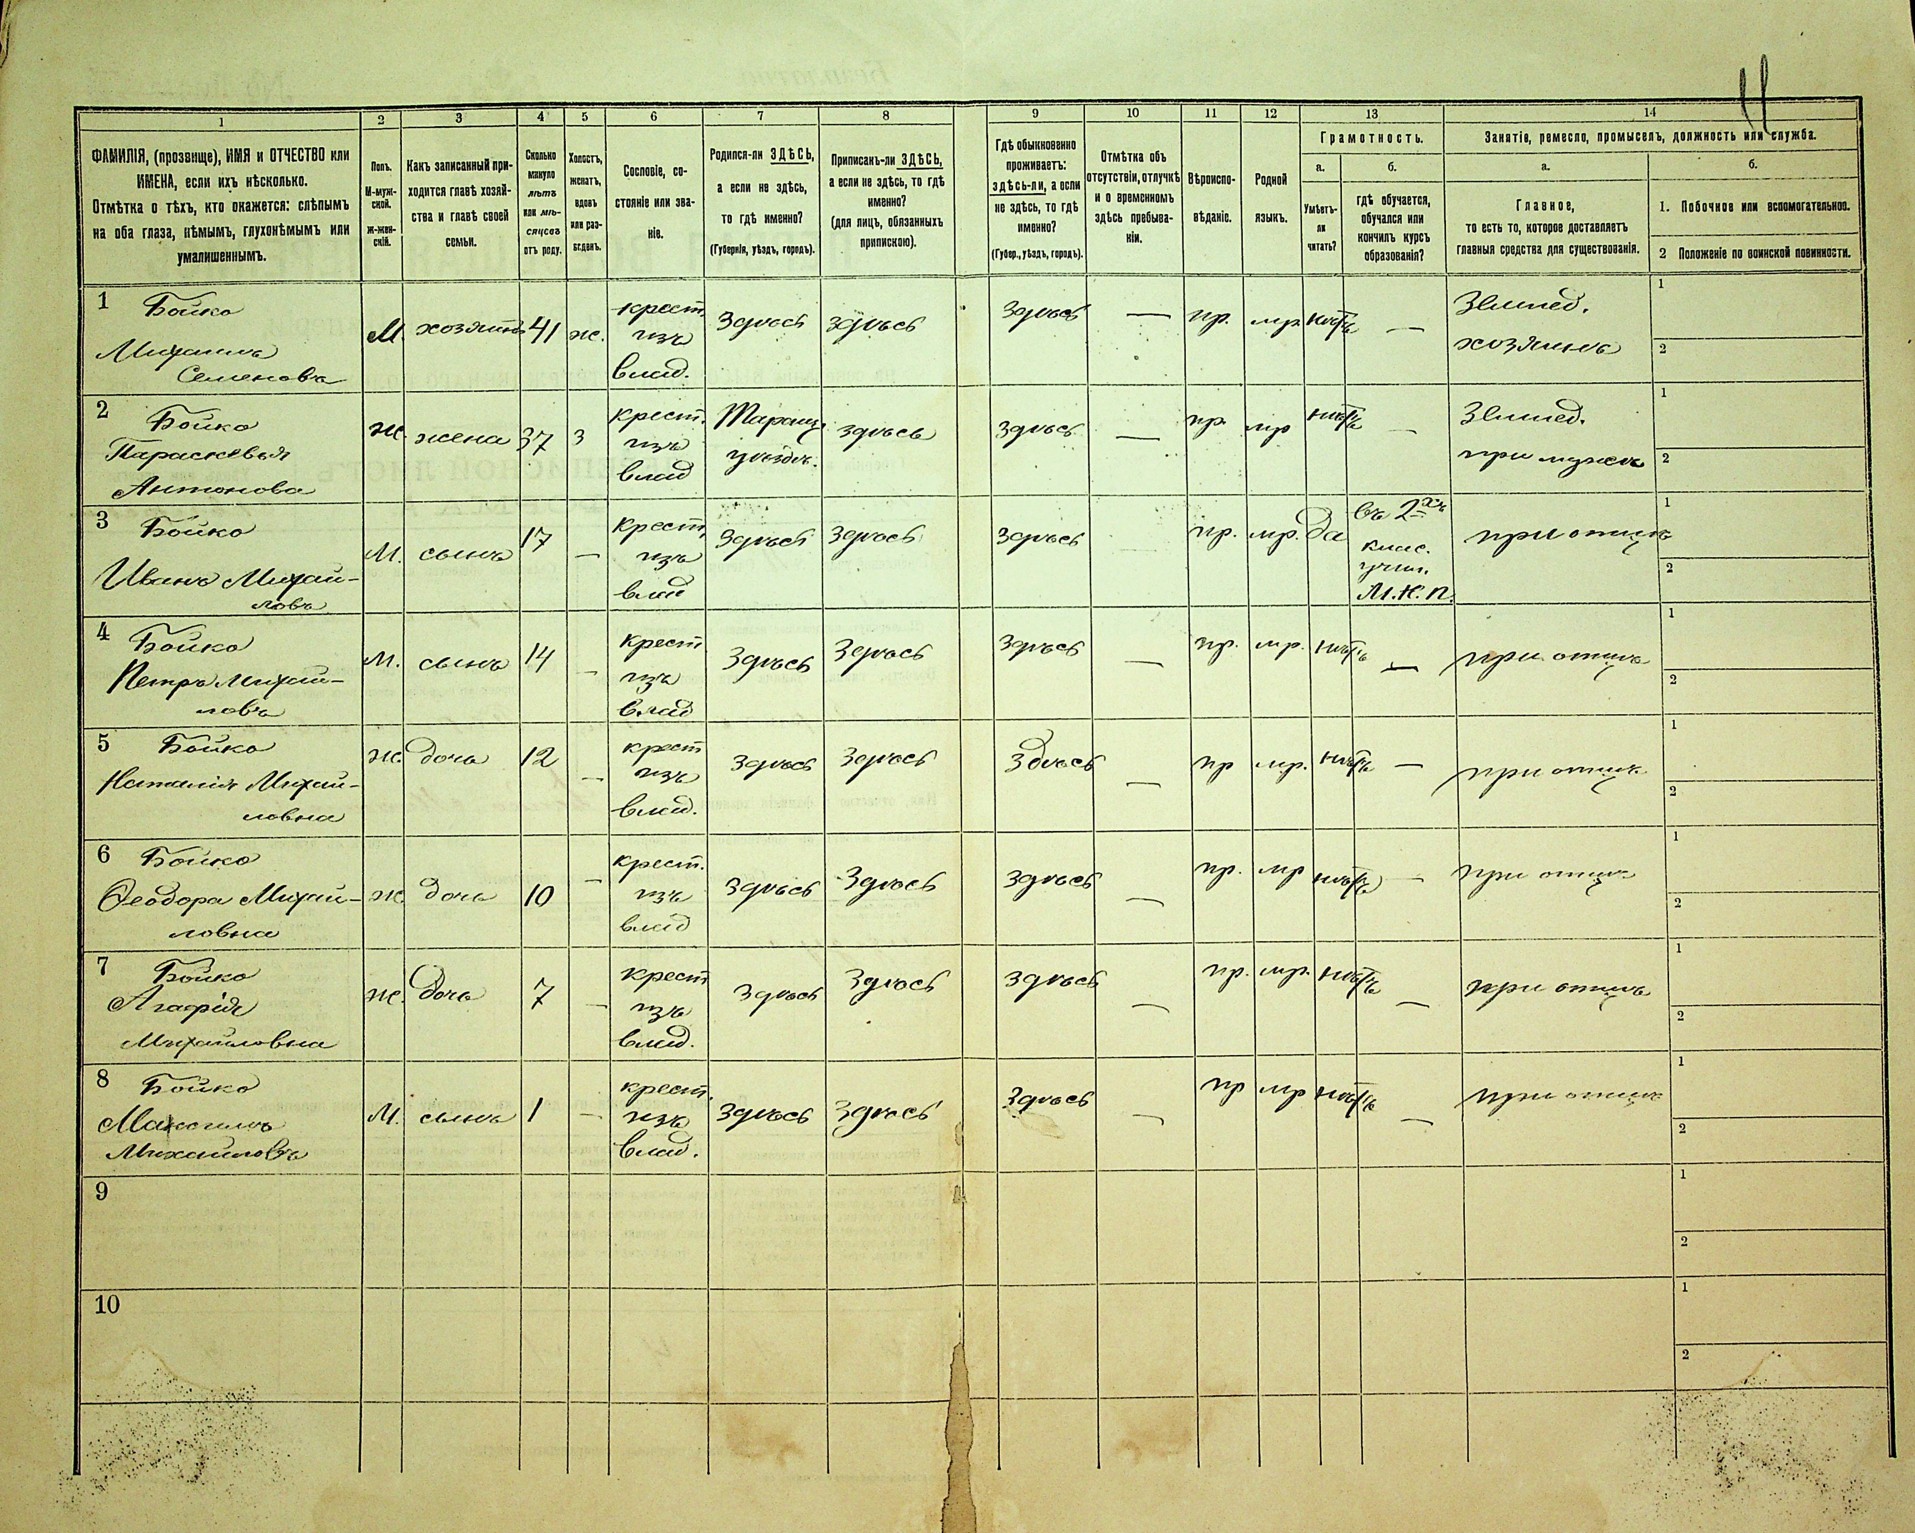 1
2
3
4
5
6
7
8
9
10
11
12
13
14
ФАМИЛІЯ, (прозвище), ИМЯ и ОТЧЕСТВО или
ИМЕНА, если ихъ нѣсколько.
Отмѣтка о тѣхъ, кто окажется: слѣпымъ
на оба глаза, нѣмымъ, глухонѣмымъ или
умалишеннымъ.
Полъ.
М-муж-
ской.
Ж-жен-
скій.
Какъ записанный при-
ходится главѣ хозяй-
ства и главѣ своей
семьи.
Сколько
минуло
лѣтъ
или мѣ-
сяцевъ
отъ роду.
Холостъ,
женатъ,
вдовъ
или раз-
веденъ.
Сословіе, со-
стояніе или зва-
ніе.
Родился-ли ЗДѢСЬ,
а если не здѣсь,
то гдѣ именно?
(Губернія, уѣздъ, городъ).
Приписанъ-ли ЗДѢСЬ,
а если не здѣсь, то гдѣ
именно?
(для лицъ, обязанныхъ
припискою).
Гдѣ обыкновенно
проживаетъ:
здѣсь-ли, а если
не здѣсь, то гдѣ
именно?
(Губер., уѣздъ, городъ).
Отмѣтка объ
отсутствіи, отлучкѣ
и о временномъ
здѣсь пребыва-
ніи.
Вѣроиспо-
вѣданіе.
Родной
языкъ.
Грамотность.
а.
Умѣетъ-
ли
читать?
б.
гдѣ обучается,
обучался или
кончилъ курсъ
образованія?
Занятія, ремесло, промыселъ, должность или служба.
а.
Главное,
то есть то, которое доставляетъ
главныя средства для существованія.
б.
1. Побочное или вспомогательное.
2 Положеніе по воинской повинности.
1 Бойко
Михаилъ
Семеновъ
М. хозяинъ 41 ж.
крест.
изъ
влад.
Здѣсь здѣсь здѣсь — пр. мр. нѣтъ —
Землед.
хозяинъ
1
2
2 Бойко
Параскевья
Антонова
Ж жена 37 з
крест.
изъ
влад
Таращ.
уѣздъ.
здѣсь здѣсь — пр. мр нѣтъ —
Землед.
при мужѣ
1
2
3 Бойко
Иванъ Михай-
ловъ
М. сынъ 17 —
крест.
изъ
влад
Здѣсь Здѣсь Здѣсь пр. мр. Да
въ 2-хъ
клас.
учил.
М.Н.П.
при отцѣ
1
2
4 Бойко
Петръ Михай-
ловъ
М. сынъ 14 —
крест
изъ
влад
Здѣсь Здѣсь Здѣсь — пр. мр. нѣтъ — при отцѣ
1
2
5 Бойко
Наталія Михай-
ловна
Ж дочь 12 —
крест
изъ
влад.
Здѣсь Здѣсь Здѣсь — пр мр. нѣтъ — при отцѣ
1
2
6 Бойко
Ѳеодора Михай-
ловна
Ж дочь 10 —
крест.
изъ
влад
Здѣсь Здѣсь Здѣсь — пр. мр нѣтъ — при отцѣ
1
2
7 Бойко
Агафія
Михайловна
Ж. дочь 7 —
крест
изъ
влад.
Здѣсь Здѣсь Здѣсь — пр. мр. нѣтъ — при отцѣ
1
2
8 Бойко
Максимъ
Михаиловъ
М. сынъ 1 —
крест.
изъ
влад.
Здѣсь Здѣсь Здѣсь — пр мр нѣтъ — при отцѣ
1
2
9
1
2
10
1
2